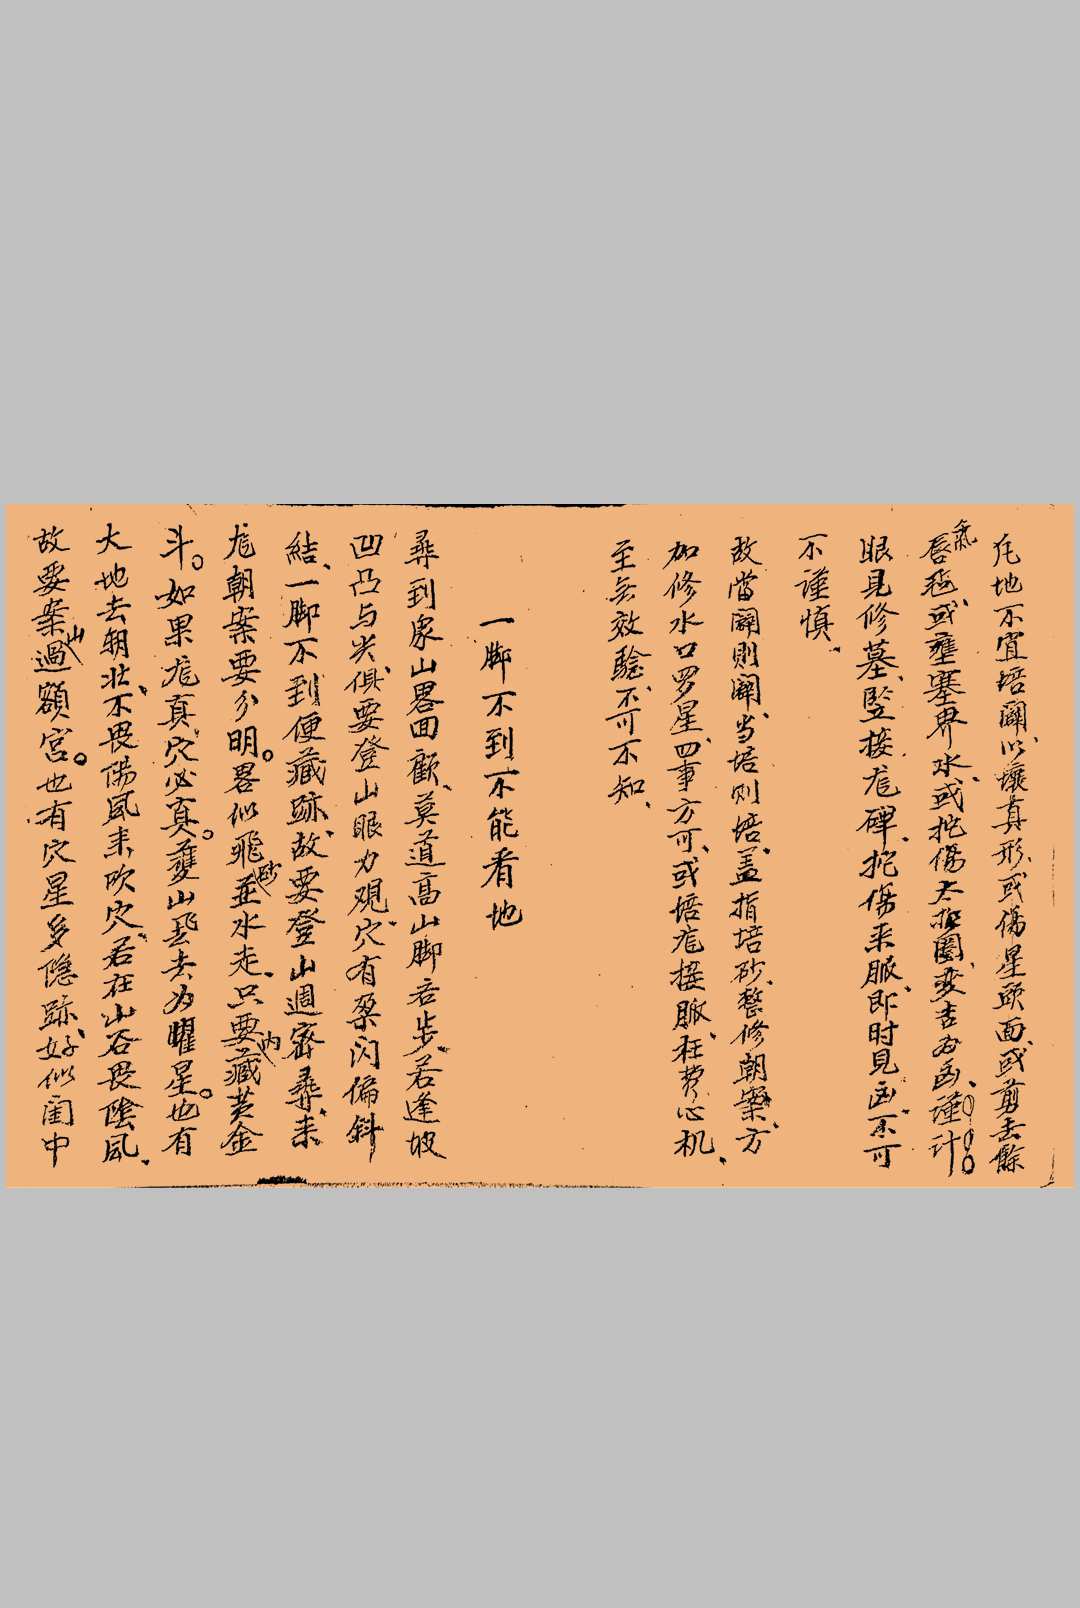 凡地不宜培闢以壞真形、或傷星頭面、或剪去餘
氣唇毡、或壅塞界水、或挖傷太極圈、变吉為凶、謹計
眼見修墓、竪接龙碑、挖傷来脈、即时見凶、不可
不謹慎、
故當闢則闢、当培则培、盖指培砂、整修朝案、方
加修水口罗星、四事方可、或培龙接脈、枉费心机、
至无效騐、不可不知、
一脚不到不能看地
尋到家山畧回顧、莫道高山脚吝步、若逢坡
凹凸与尖、俱要登山眼力观、穴有朶闪偏斜
結、一脚不到便藏跡、故要登山週密尋、来
龙朝案要分明。畧似飛砂並水走、只要内藏黄金
斗。如果龙真穴必真。山飛去去为曜星。也有
大地去朝壮、不畏陽風来吹穴、若在山谷畏陰風、
故要案山過額宮。也有穴星多隐跡、好似閨中